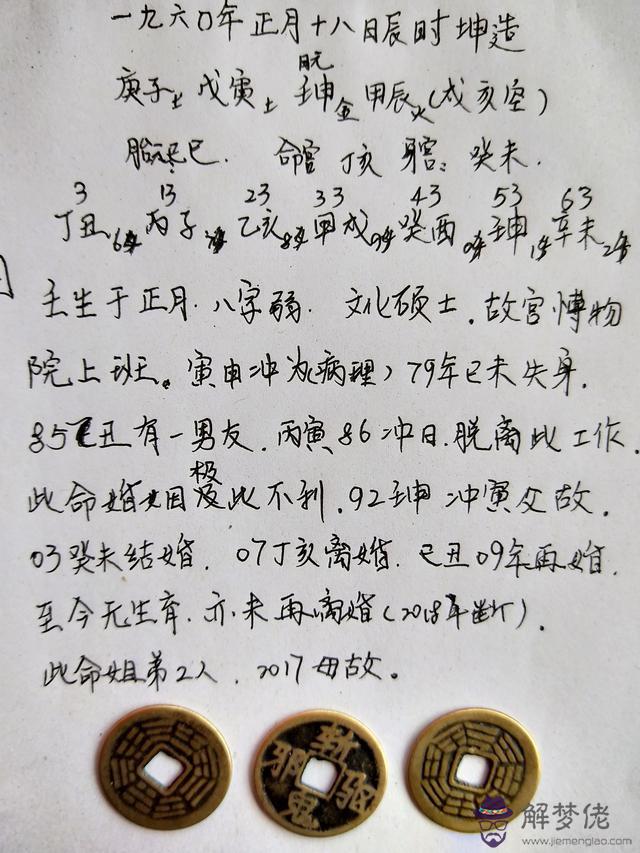 一九六〇年正月十八日辰时坤造
庚子土 戊寅土 壬申金 甲辰火(戌亥空)
胎元己巳. 命宫 丁亥 身宫: 癸未.
3 13 23 33 43 53 63
丁丑 丙子 乙亥 甲戌 癸酉 壬申 辛未
壬生于正月. 八字弱. 文化硕士. 故宫博物
院上班。寅申冲为(病理) 79年己未失身.
85乙丑有一男友. 丙寅86冲日. 脱离此工作.
此命婚姻极此不利. 92壬申冲寅父故.
03癸未结婚. 07丁亥离婚. 己丑09年再婚.
至今无生育. 亦未再离婚(2018年断).
此命姐弟2人. 2017母故。
斩鬼驱邪
解梦佬
www.jiemenglao.com